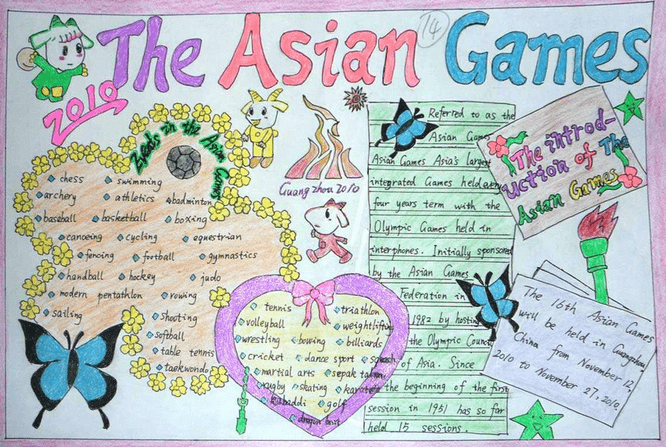 The Asian Games
14
2010
in the Asian
Games
chess swimming
archery athletics badminton
baseball basketball boxing
canoeing cycling equestrian
fencing football gymnastics
handball hockey judo
modern pentathlon rowing
sailing shooting
softball
table tennis
taekwondo
Guangzhou 2010
tennis triathlon
volleyball weightlifting
wrestling bowing billiards
cricket dance sport squash
martial arts sepak takraw
rugby skating karate
kabaddi golf
dragon boat
Referred to as the
Asian Games,
Asian Games Asia's largest
integrated Games held every
four years term with the
Olympic Games held in
interphones. Initially sponsored
by the Asian Games
Federation in
1982 by hosting
the Olympic Council
of Asia. Since
the beginning of the first
session in 1951 has so far
held 15 sessions.
The introd-
uction of The
Asian Games
The 16th Asian Games
will be held in Guangzhou
China from November 12,
2010 to November 27, 2010